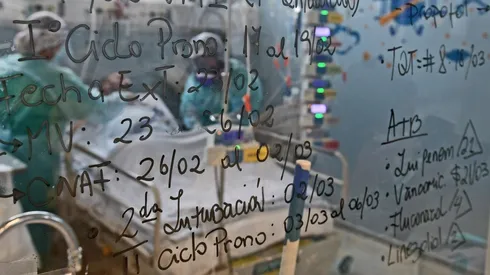 I° Ciclo Prono: 17 al 19/02
Fecha Ext: 2?/02
→ MV: 23 26/02
→ CNAF: 26/02 al 02/03
2da Intubación: 02/03
II Ciclo Prono: 03/03 al 06/03
Propofol
TQT = #8
ATB
Imipenem
Vancomic.
Fluconazol
Linezolid